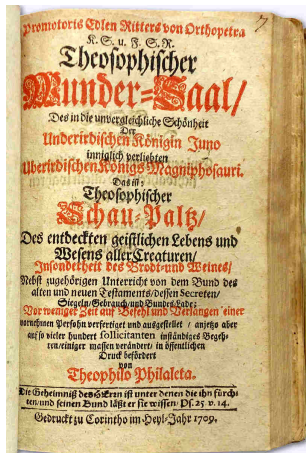 Promotoris Edlen Ritters von Orthopetra
K. S. u. F. S. R.
Theosophischer
Wunder-Saal/
Des in die unvergleichliche Schönheit
Der
Underirdischen Königin Juno
inniglich verliebten
Uberirdischen Königs Magniphosauri.
Das ist:
Theosophischer
Schau-Paltz/
Des entdeckten geistlichen Lebens und
Wesens aller Creaturen/
Insonderheit des Brodt- und Weines/
Nebst zugehörigen Unterricht von dem Bund des
alten und neuen Testaments/dessen Secreten/
Siegeln/Gebrauch/und Bundes Lade;
Vor weniger Zeit auf Befehl und Verlangen einer
vornehmen Persohn verfertiget und ausgestellet / anjetzo aber
auf so vieler hundert sollicitanten inständiges Begeh-
ren/einiger massen verändert/ in öffentlichen
Druck befördert
von
Theophilo Philaleta.
Die Geheimniß des HErrn ist unter denen die ihn fürch-
ten/und seinen Bund läßt er sie wissen. Ps. 25. v. 14.
Gedruckt zu Corintho im Heyl-Jahr 1709.